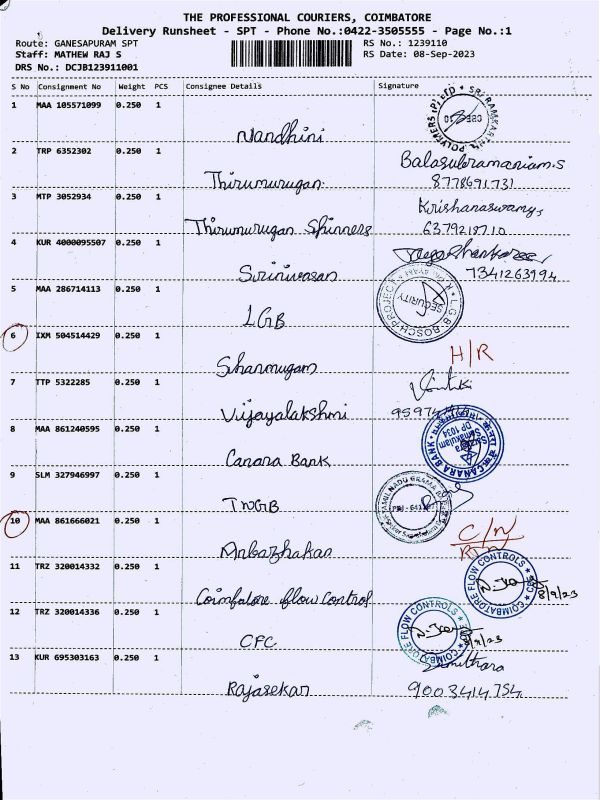 THE PROFESSIONAL COURIERS, COIMBATORE
Delivery Runsheet - SPT - Phone No.:0422-3505555 - Page No.:1
Route: GANESAPURAM SPT RS No.: 1239110
Staff: MATHEW RAJ S RS Date: 08-Sep-2023
DRS No.: DCJB123911001
S No Consignment No Weight PCS Consignee Details Signature
1 MAA 105571099 0.250 1
Nandhini
2 TRP 6352302 0.250 1 Balasubramaniam.S
Thirumurugan. 8778691731
3 MTP 3052934 0.250 1 Krishanaswamy,
Thirumurugan Spinners 6379218710
4 KUR 4000095507 0.250 1
Srinivasan 7341263994
5 MAA 286714113 0.250 1 SECURITY
LGB
6 IXM 504514429 0.250 1 H/R
Shanmugam
7 TTP 5322285 0.250 1
Vijayalakshmi
8 MAA 861240595 0.250 1 CANARA BANK
DP 1034
Canara Bank
9 SLM 327946997 0.250 1
TNGB
10 MAA 861666021 0.250 1 C/N
Anbazhakan RTN
11 TRZ 320014332 0.250 1 COIMBATORE FLOW CONTROLS
Coimbatore flow Control 8/9/23
12 TRZ 320014336 0.250 1 COIMBATORE FLOW CONTROLS
CFC 8/9/23
13 KUR 695303163 0.250 1
Rajasekar 9003414754